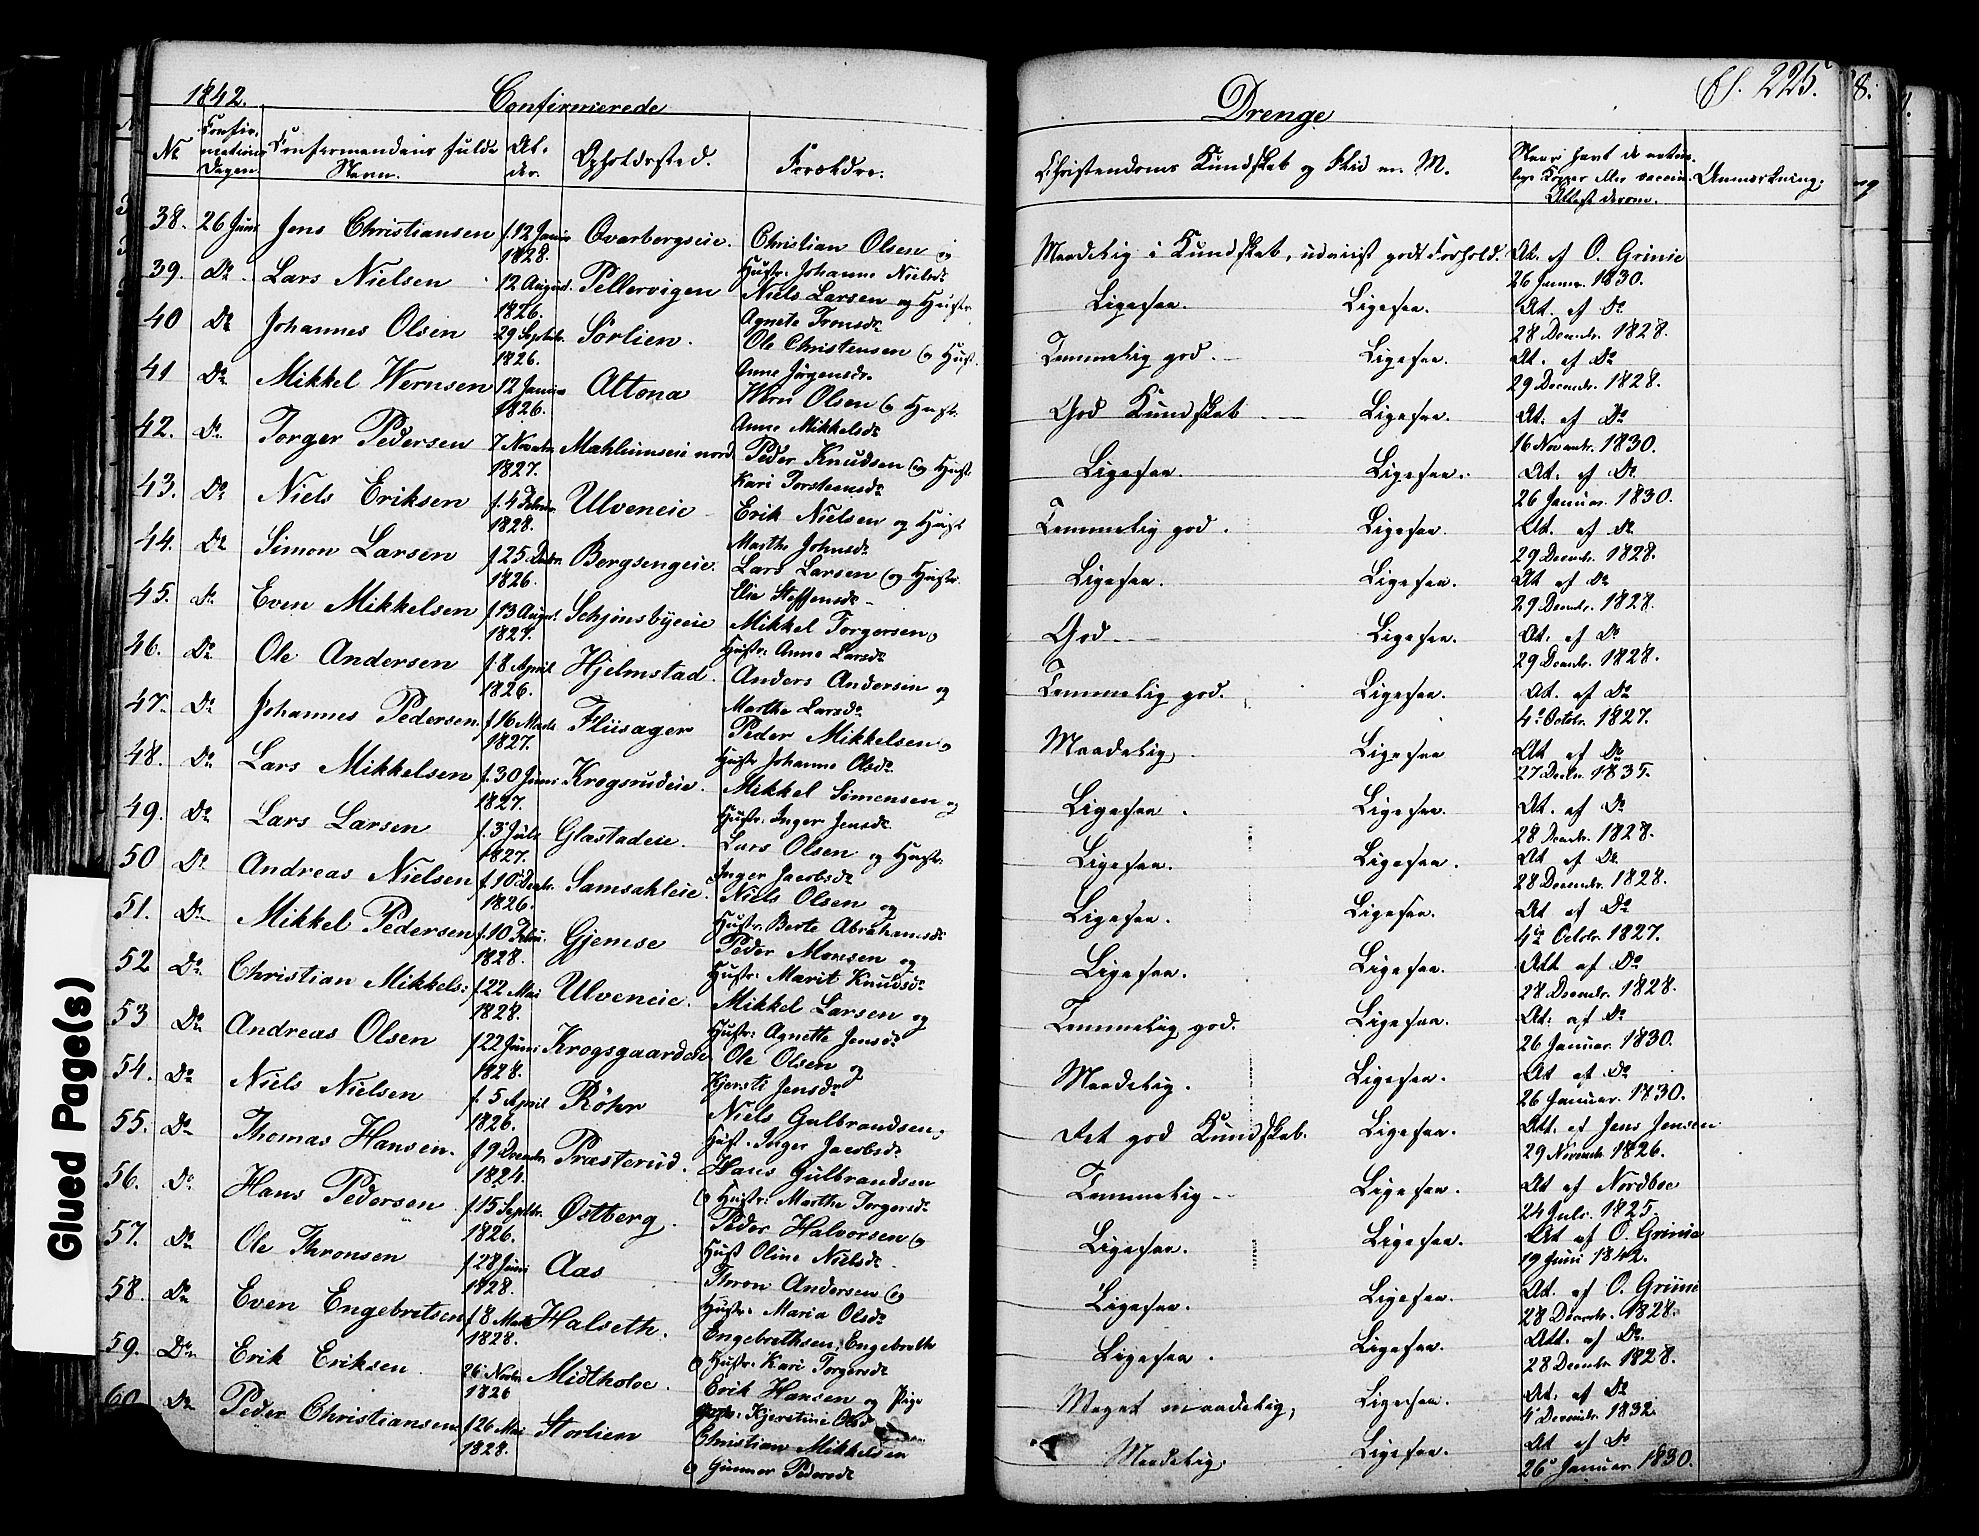 1842. Confirmerede Drenge fl. 225.
No Confir-mations Dagen. Confirmandens fulde Navn. Al-der. Opholdssted. Forældre. Christendoms Kundskab og Flid m. M. Naar havt de naturlige Kopper eller vaccin. Attest derom. Anmærkning.
38. 26 Juni Jens Christiansen f. 12 Januar Ovarbergseie. Christian Olsen og Maadelig i Kundskab, udviist godt Forhold. At. af O. Grinie
1828. Hustr: Johanne Nielsdr 26 Januar. 1830.
39. Do. Lars Nielsen 12 August. Pellervigen Niels Larsen og Hustr Ligesaa. Ligesaa. At. af Do
1826. Agnete Tronsdr 28 Decembr. 1828.
40 Do Johannes Olsen 29 Septebr. Sørlien. Ole Christensen og Hustr. Temmelig god. Ligesaa. At. af Do
1826. Anne Jörgensdr. 29 Decembr. 1828.
41 Do Mikkel Wernsen 12 Januar Altona Wern Olsen og Hustr. God Kundskab Ligesaa. At. af Do
1826. Anne Mikkelsdr 16 Novembr. 1830.
42. Do. Torger Pedersen 7 Novebr Mæhlumseie nord. Peder Knudsen og Hustr Ligesaa. Ligesaa. At. af Do
1827. Kari Torstensdr 26 Januar. 1830.
43. Do Niels Eriksen f. 4 Febr. Ulveneie Erik Nielsen og Hustr Temmelig god. Ligesaa. At. af Do
1828. Marthe Johnsdr 29 Decembr. 1828.
44. Do Simon Larsen f 25 Decbr. Borgsengeie. Lars Larsen og Hustr. Ligesaa. Ligesaa. At af Do
1826. Elie Steffensdr 29 Decembr. 1828.
45. Do Even Mikkelsen f 13 August. Schjønsbyeeie Mikkel Torgersen, God. Ligesaa. At. af Do
1827. Hustr: Anne Larsdr 29 Decembr. 1828.
46. Do Ole Andersen f. 8 April Hjelmstad. Anders Andersen og Temmelig god. Ligesaa. At. af Do
1826. Marthe Larsdr. 4. Octobr. 1827.
47. Do Johannes Pedersen. f 16 Marts Fliisager Peder Mikkelsen, Maadelig Ligesaa At af Do
1827. Hustr Johanne Olsdr. 27 Decbr. 1835.
48. Do Lars Mikkelsen f. 30 Juni Krogsrudeie. Mikkel Simensen og Ligesaa. Ligesaa. At. af Do
1827. Hustr. Inger Jensdr. 28 Decembr. 1828.
49. Do Lars Larsen f. 3 Juli Glæstadeie. Lars Olsen og Hustr. Ligesaa. Ligesaa. At af Do.
1827. Inger Jacobsdr 28 Decembr. 1828.
50 Do Andreas Nielsen f. 10 Decbr. Samsahleie. Niels Olsen og Ligesaa. Ligesaa. At af Do
1826. Hustr: Berte Abrahamsdr 4de Octobr. 1827.
51. Do. Mikkel Pedersen f. 10 Febru. Gjemse Peder Monsen og Ligesaa. Ligesaa. Att af Do
1828. Hustr: Marit Knudsdr 28 Decembr. 1828.
52 Do. Christian Mikkels: f. 22 Mai Ulveneie. Mikkel Larsen og Temmelig god. Ligesaa. At: af Do
1828. Hustr: Agnette Jensdr 26 Januar. 1830.
53 Do Andreas Olsen f 22 Juni Krogsgaardeie Ole Olsen og Maadelig. Ligesaa. At af Do
1828. Kjersti Jensdr 26 Januar. 1830.
54. Do Niels Nielsen f. 5 April Röhr Niels Gulbrandsen, Det god Kundskab. Ligesaa. Att. af Jens Jensen
1826. Hust: Inger Jacobsdr 29 Novembr 1826.
55. Do Thomas Hansen. f 9 Decembr Præsterud. Hans Gulbrandsen Temmelig Ligesaa. At af Nordboe
1824. og Hustr: Marthe Torgersdr 24 Juli. 1825.
56. Do Hans Pedersen f 15 Septbr. Østberg. Peder Halvorsen og Ligesaa. Ligesaa. At af O. Grinie
1826. Hust Oline Nielsdr 19 Juni 1842.
57. Do. Ole Thronsen f 28 Juni Aas Thron Andersen og Ligesaa. Ligesaa. At. af O. Grinie
1828. Hustr: Maria Olsdr 28 Decembr. 1828.
58. Do Even Engebretsen f 8 Marts Halseth. Engebrethsen, Engebreth Ligesaa. Ligesaa. Att. af Do
1828. og Hustr: Kari Torgersdr 28 Decembr 1828.
59. Do. Erik Eriksen 26 Novbr Midtholve. Erik Hansen og Pige Meget maadelig, Ligesaa. At. af Do
1826 Kjerstine Olsdr 4 Decembr. 1832.
60 Do Peder Christiansen f 26 Mai Storlien Christian Mikkelsen Maadelig. Ligesaa. At af Do
1828. og Gunner Pedersdr 26 Januar 1830.
8.
Glued Page(s)